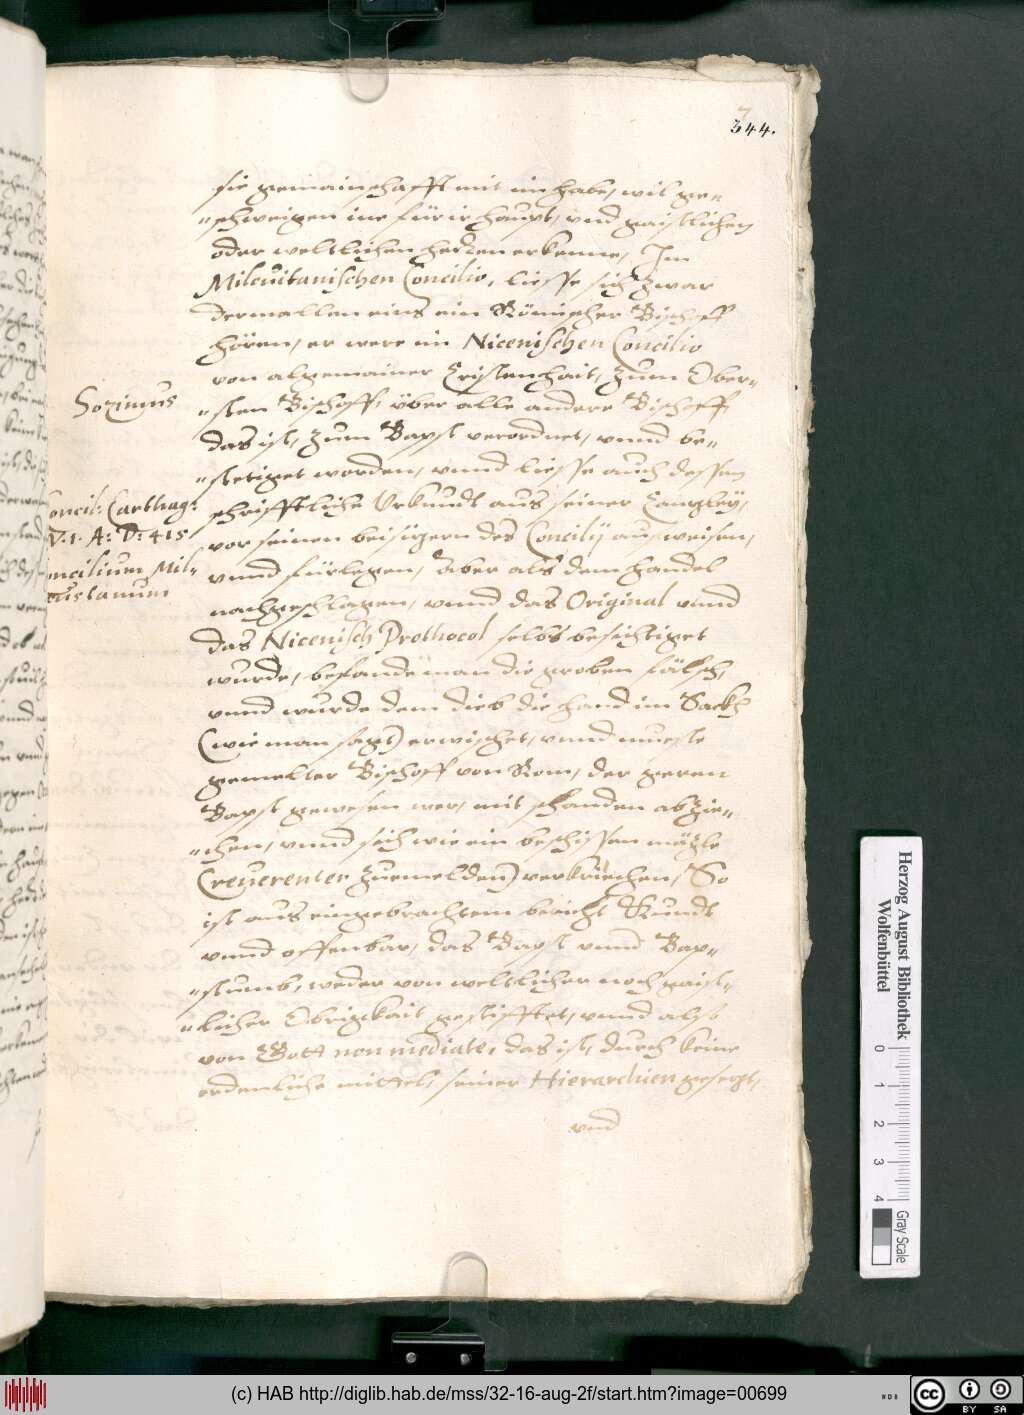 7
344.
sie gemainschafft mit im habe, wil ge=
=schweigen ine für ir haupt, vnd gaistlichen
oder weltlichen herren erkenne, Im
Milevitanischen Concilio, liesse sich zwar
dermallen eins ein Römischer Bischoff
hören, er were im Nicenischen Concilio
von algemainer Cristenhait, zum Ober=
=sten Bischoff, über alle andere Bischoff,
das ist, zum Bapst verordnet, vnnd be=
=stetiget worden, vnnd liesse auch dessen
schrifftliche Urkundt aus seiner Canzley,
vor seinen beisizern des Concilij aufweisen,
vnnd fürlegen, Aber als dem handel
nachgeschlagen, vnnd das Original vnnd
das Nicenisch Prothocol selbs besichtiget
wurde, befande man die groben fälsch,
vnnd wurde dem dieb die hand im Sackh
(wie man sagt) erwischet, vnnd mueste
gemelter Bischoff von Rom, der geren
Bapst gewesen wer, mit schanden abzie=
=chen, vnnd sich wie ein beschissen mäzle
(reverenter zuemelden) verkriechen, So
ist aus eingebrachtem bericht Kundt
vnnd offenbar, das Bapst vnnd Bap=
=stumb, weder von weltlicher noch gaist=
=licher Obrigkait gestifftet, vnnd also
von Gott non mediate, das ist, durch keine
ordenliche mittel, seiner Hierarchien gesezt,
vnd
Sozimus
oncil: Carthag:
V. 1. A: D: 415
ncilium Mil=
vitanum
Herzog August Bibliothek
Wolfenbüttel
0 1 2 3 4
Gray Scale
(c) HAB http://diglib.hab.de/mss/32-16-aug-2f/start.htm?image=00699
WDB
cc
BY SA